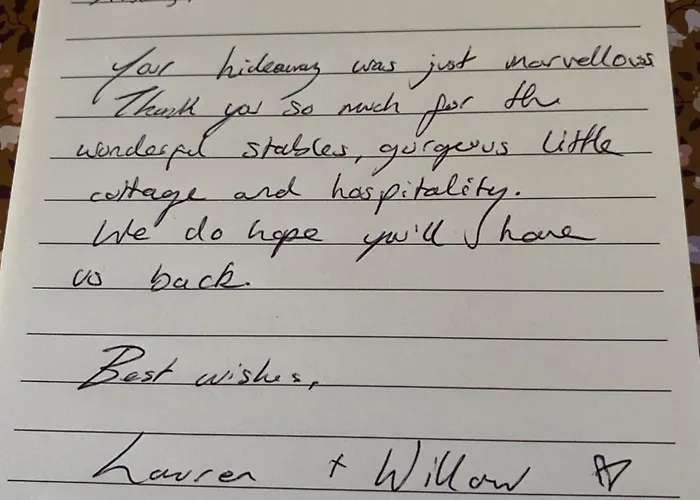 Your hideaway was just marvellous
Thank you so much for the
wonderful stables, gorgeous little
cottage and hospitality.
We do hope you'll have
us back.
Best wishes,
Lauren + Willow